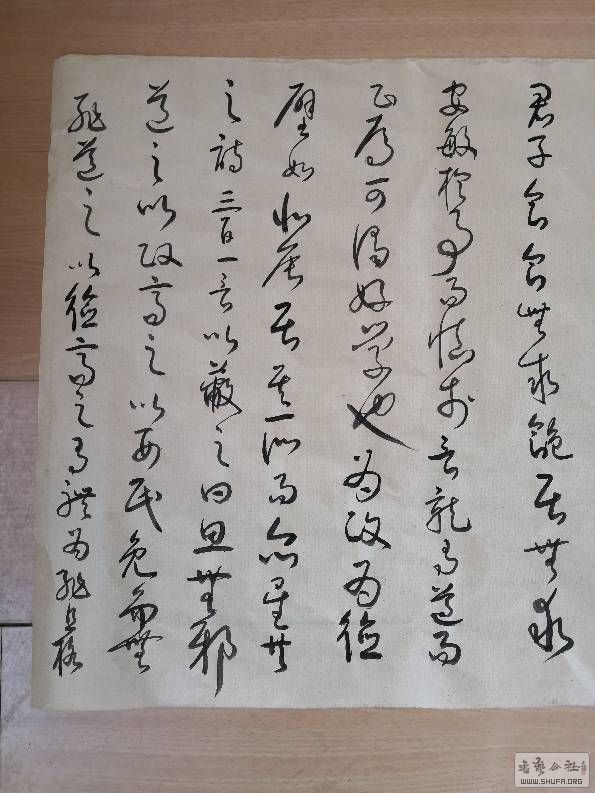 君子食食無求飽居無求
安敏於事而慎於言就有道而
正焉可謂好学也为政为德
譬如北辰居其所而众星共
之詩三百一言以蔽之曰思無邪
道之以政齊之以刑民免而無
恥道之以德齊之有禮为恥且格
書藝公社
WWW.SHUFA.ORG